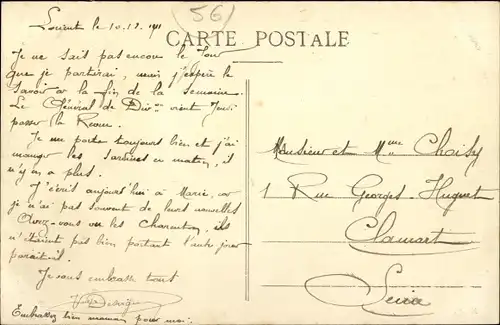 (56)
Lorient le 10.12.1911
CARTE POSTALE
Je ne sais pas encore le Jour
que je partirai, mais j'espère le
savoir à la fin de la semaine.
Le Général de Divon vient Jeudi
passer la Revue.
Je me porte toujours bien et j'ai
mangé les Sardines ce matin, il
n'y en a plus.
J'écris aujourd'hui à Marie, car
je n'ai pas souvent de leurs nouvelles
Avez-vous vu les Charenton, ils
n'étaient pas bien portant l'autre jour
paraît-il.
Je vous embrasse tous
Embrassez bien maman pour moi.
Monsieur et Mme Choisy
1 Rue Georges-Huguet
Clamart
Seine